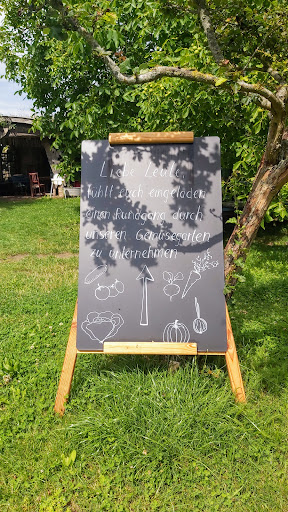 Liebe Leute,
fühlt euch eingeladen
einen Rundgang durch
unseren Gemüsegarten
zu unternehmen